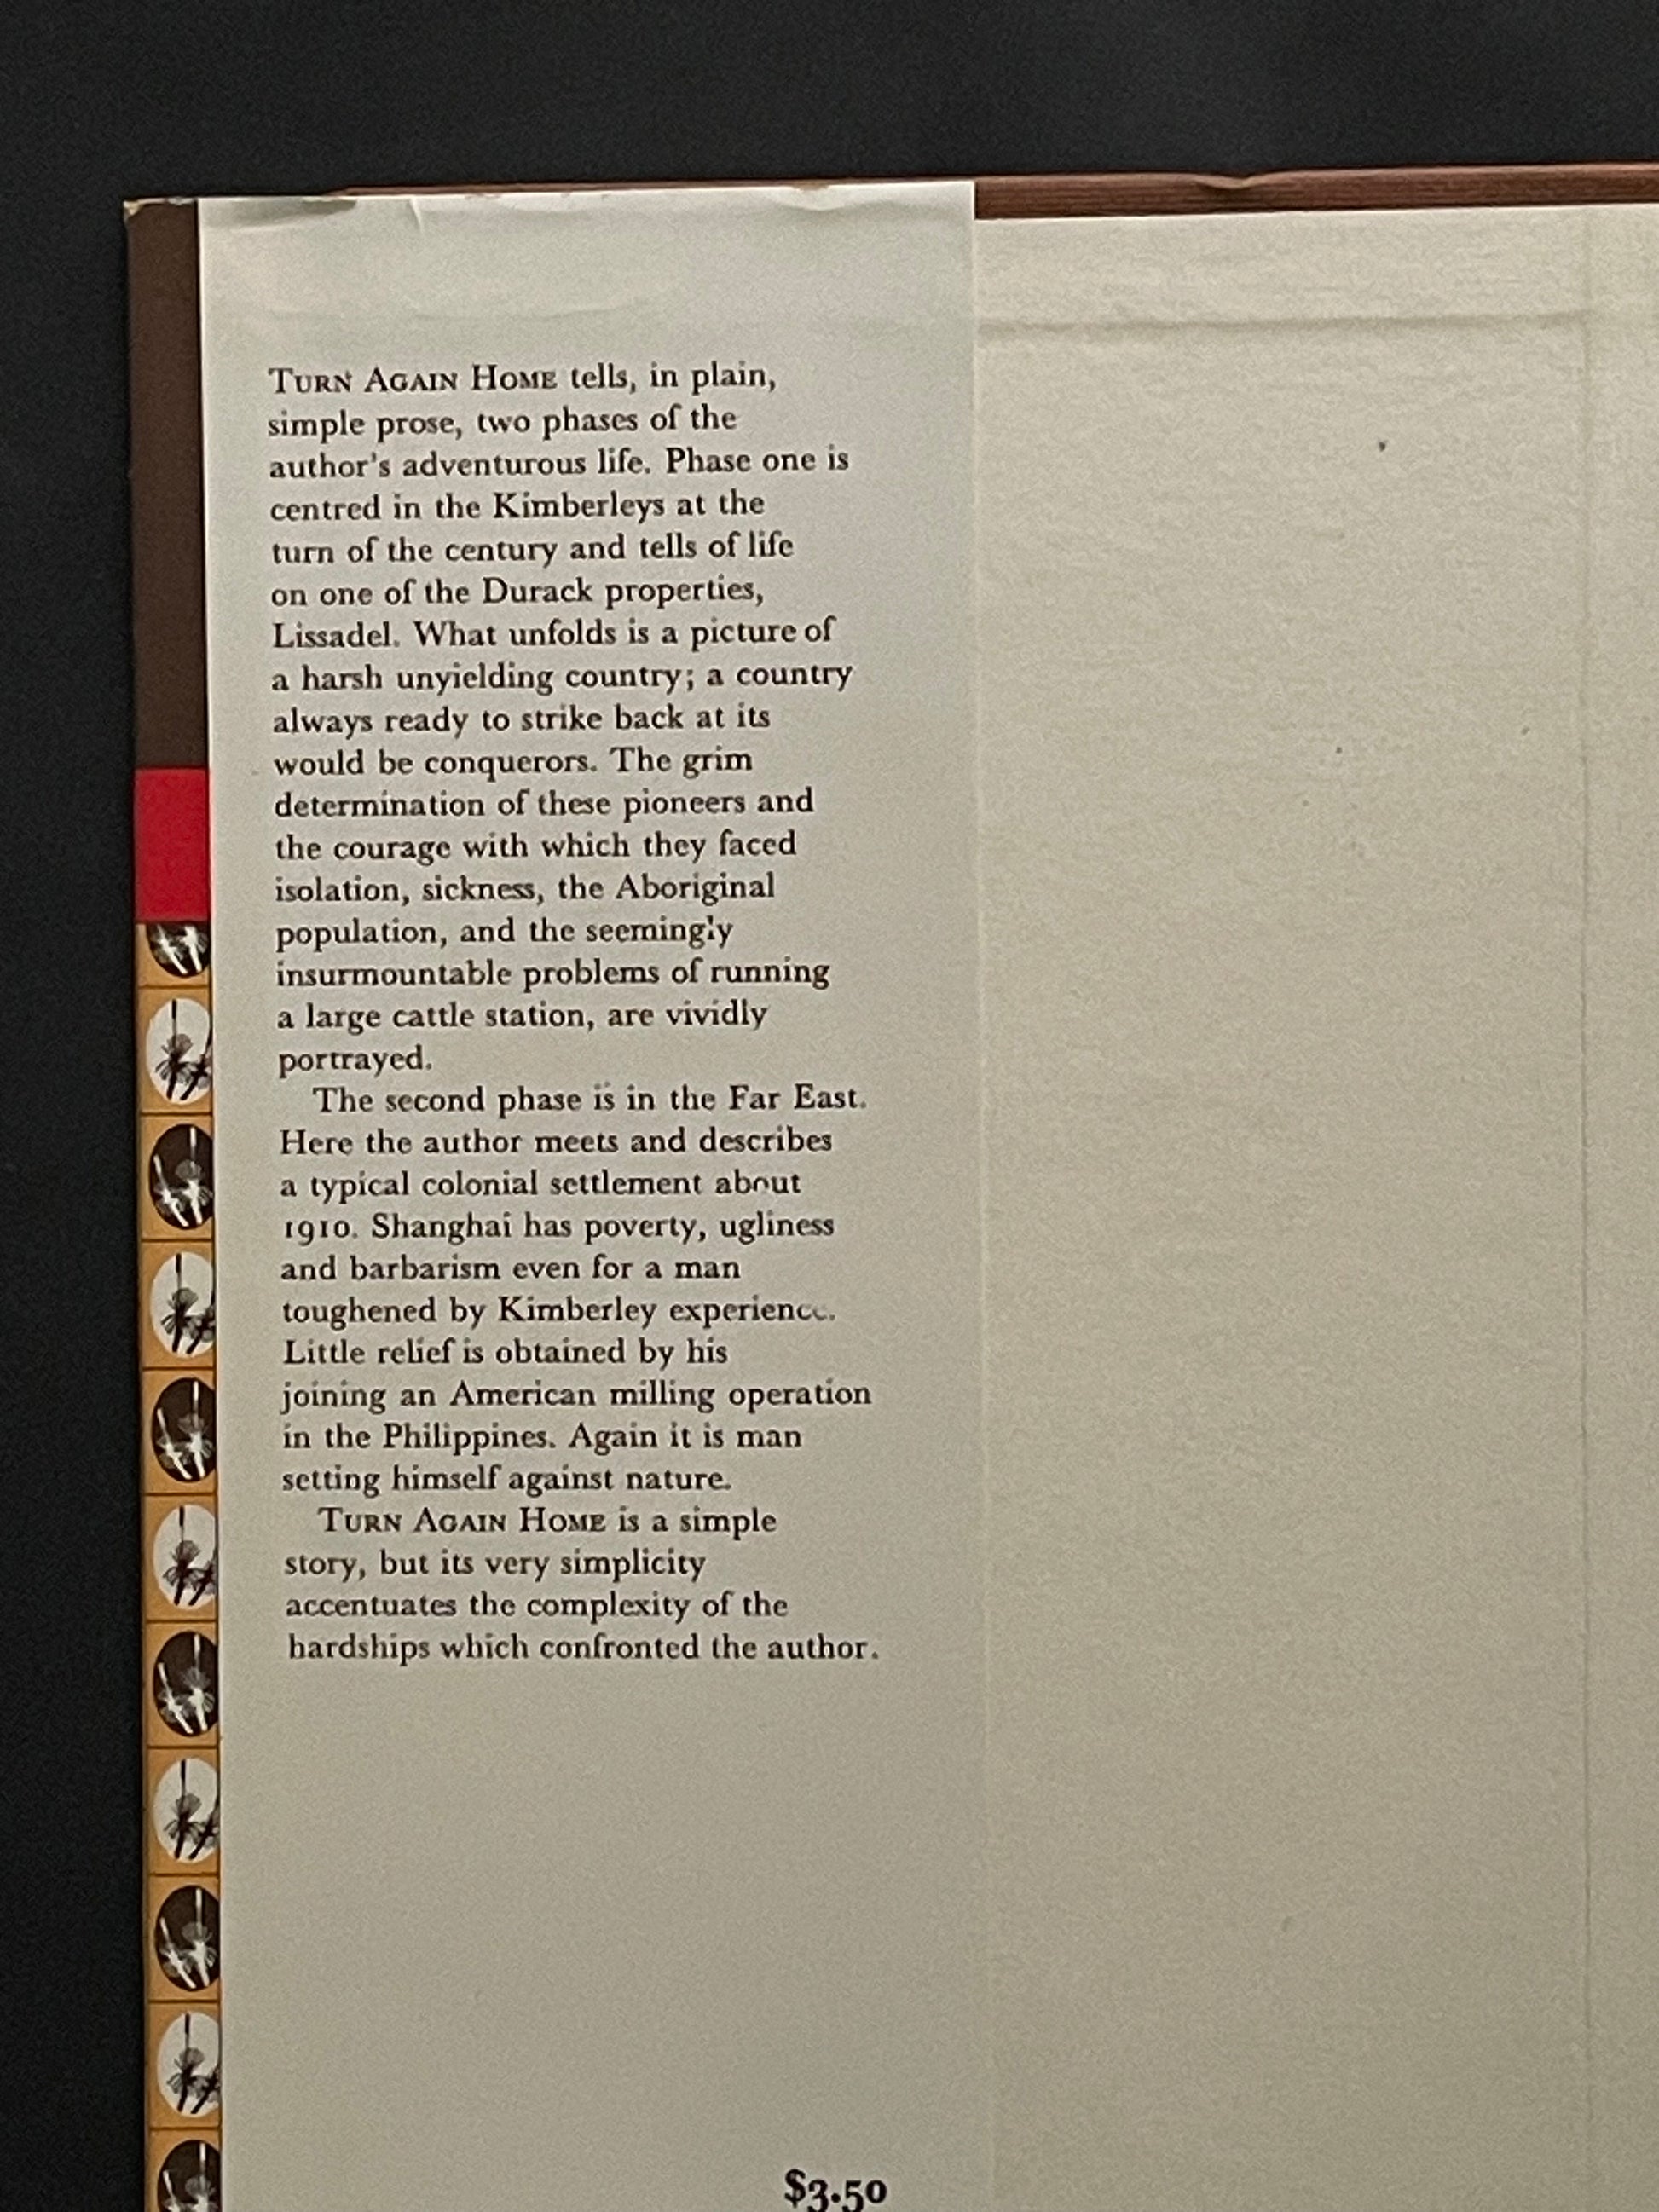 TURN AGAIN HOME tells, in plain,
simple prose, two phases of the
author's adventurous life. Phase one is
centred in the Kimberleys at the
turn of the century and tells of life
on one of the Durack properties,
Lissadel. What unfolds is a picture of
a harsh unyielding country; a country
always ready to strike back at its
would be conquerors. The grim
determination of these pioneers and
the courage with which they faced
isolation, sickness, the Aboriginal
population, and the seemingly
insurmountable problems of running
a large cattle station, are vividly
portrayed.
The second phase is in the Far East.
Here the author meets and describes
a typical colonial settlement about
1910. Shanghai has poverty, ugliness
and barbarism even for a man
toughened by Kimberley experience.
Little relief is obtained by his
joining an American milling operation
in the Philippines. Again it is man
setting himself against nature.
TURN AGAIN HOME is a simple
story, but its very simplicity
accentuates the complexity of the
hardships which confronted the author.
$3.50